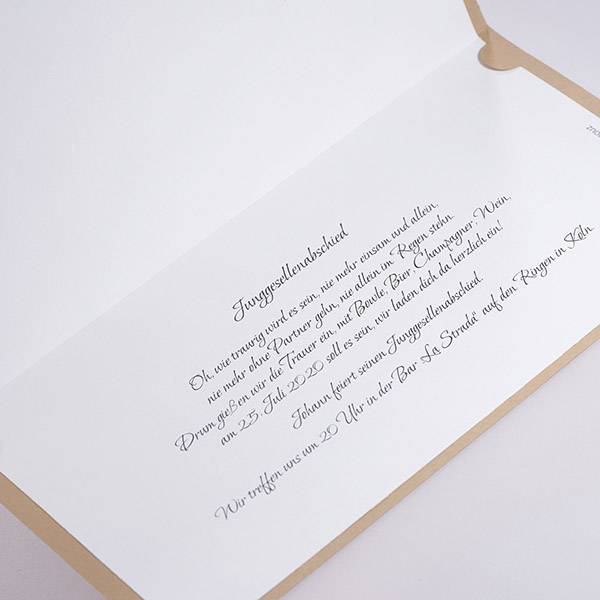 Junggesellenabschied
Oh, wie traurig wird es sein, nie mehr einsam und allein,
nie mehr ohne Partner gehn, nie allein im Regen stehn.
Drum gießen wir die Trauer ein, mit Bowle, Bier, Champagner, Wein,
am 25. Juli 2020 soll es sein, wir laden dich da herzlich ein!
Johann feiert seinen Junggesellenabschied
Wir treffen uns um 20 Uhr in der Bar "La Strada" auf den Ringen in Köln.